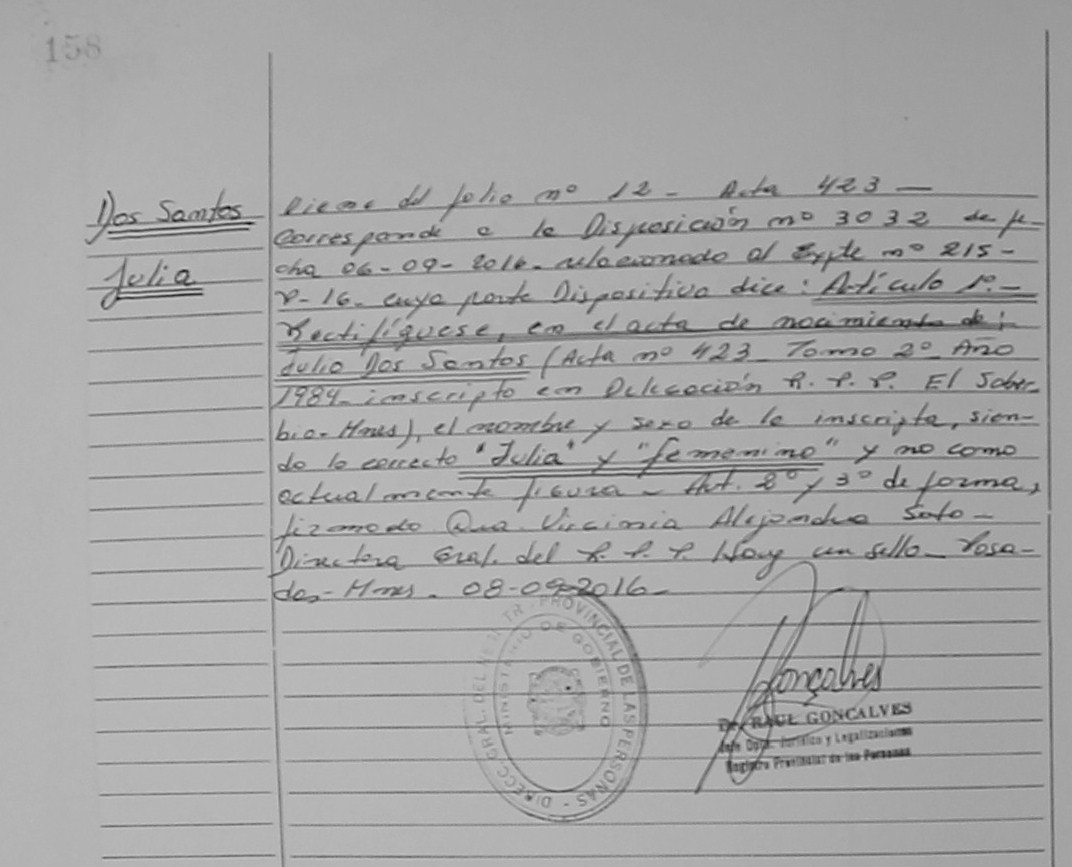 158
Dos Santos
Julia
Viene del folio nº 12 - Acta 423 —
Corresponde a la Disposición nº 3032 de fe-
cha 06-09-2016- relacionado al Expte nº 215-
P-16- cuya parte Dispositiva dice: Artículo 1º.-
Rectifíquese, en el acta de nacimiento de:
Julio Dos Santos (Acta nº 423 Tomo 2º Año
1984- inscripto en Delegación R.P.P. El Sober-
bio-Mnes), el nombre y sexo de la inscripta, sien-
do lo correcto "Julia" y "femenino" y no como
actualmente figura - Art. 2º y 3º de forma,
firmado Dra. Virginia Alejandra Soto -
Directora Gral. del R.P.P. Hay un sello- Posa-
das-Mnes. 08-09-2016-
DIRECC. GRAL. DEL REGISTR. PROVINCIAL DE LAS PERSONAS -
MINISTERIO DE GOBIERNO
Gonçalves
Dr. RAUL GONCALVES
Jefe Dpto. Jurídico y Legalizaciones
Registro Provincial de las Personas